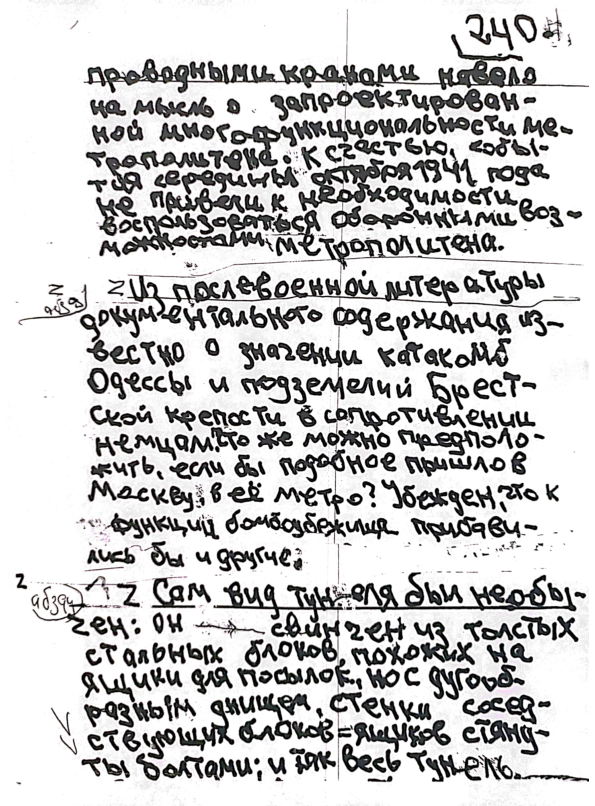 240
проводными кранами навело
на мысль о запроектирован-
ной многофункциональности ме-
трополитена. К счастью, собы-
тия середины октября 1941 года
не привели к необходимости
воспользоваться оборонными воз-
можностями метрополитена.
Z Z Из послевоенной литературы
абзац
документального содержания из-
вестно о значении катакомб
Одессы и подземелий Брест-
ской крепости в сопротивлении
немцам. Что же можно предполо-
жить, если бы подобное пришло в
Москву, в её метро? Убежден, что к
функции бомбоубежища прибави-
лись бы и другие.
Z Z Сам вид тунеля был необы-
абзац
чен: он свинчен из толстых
стальных блоков, похожих на
ящики для посылок, но с дугооб-
разным днищем, стенки сосед-
ствующих блоков=ящиков стяну-
ты болтами; и так весь тунель.